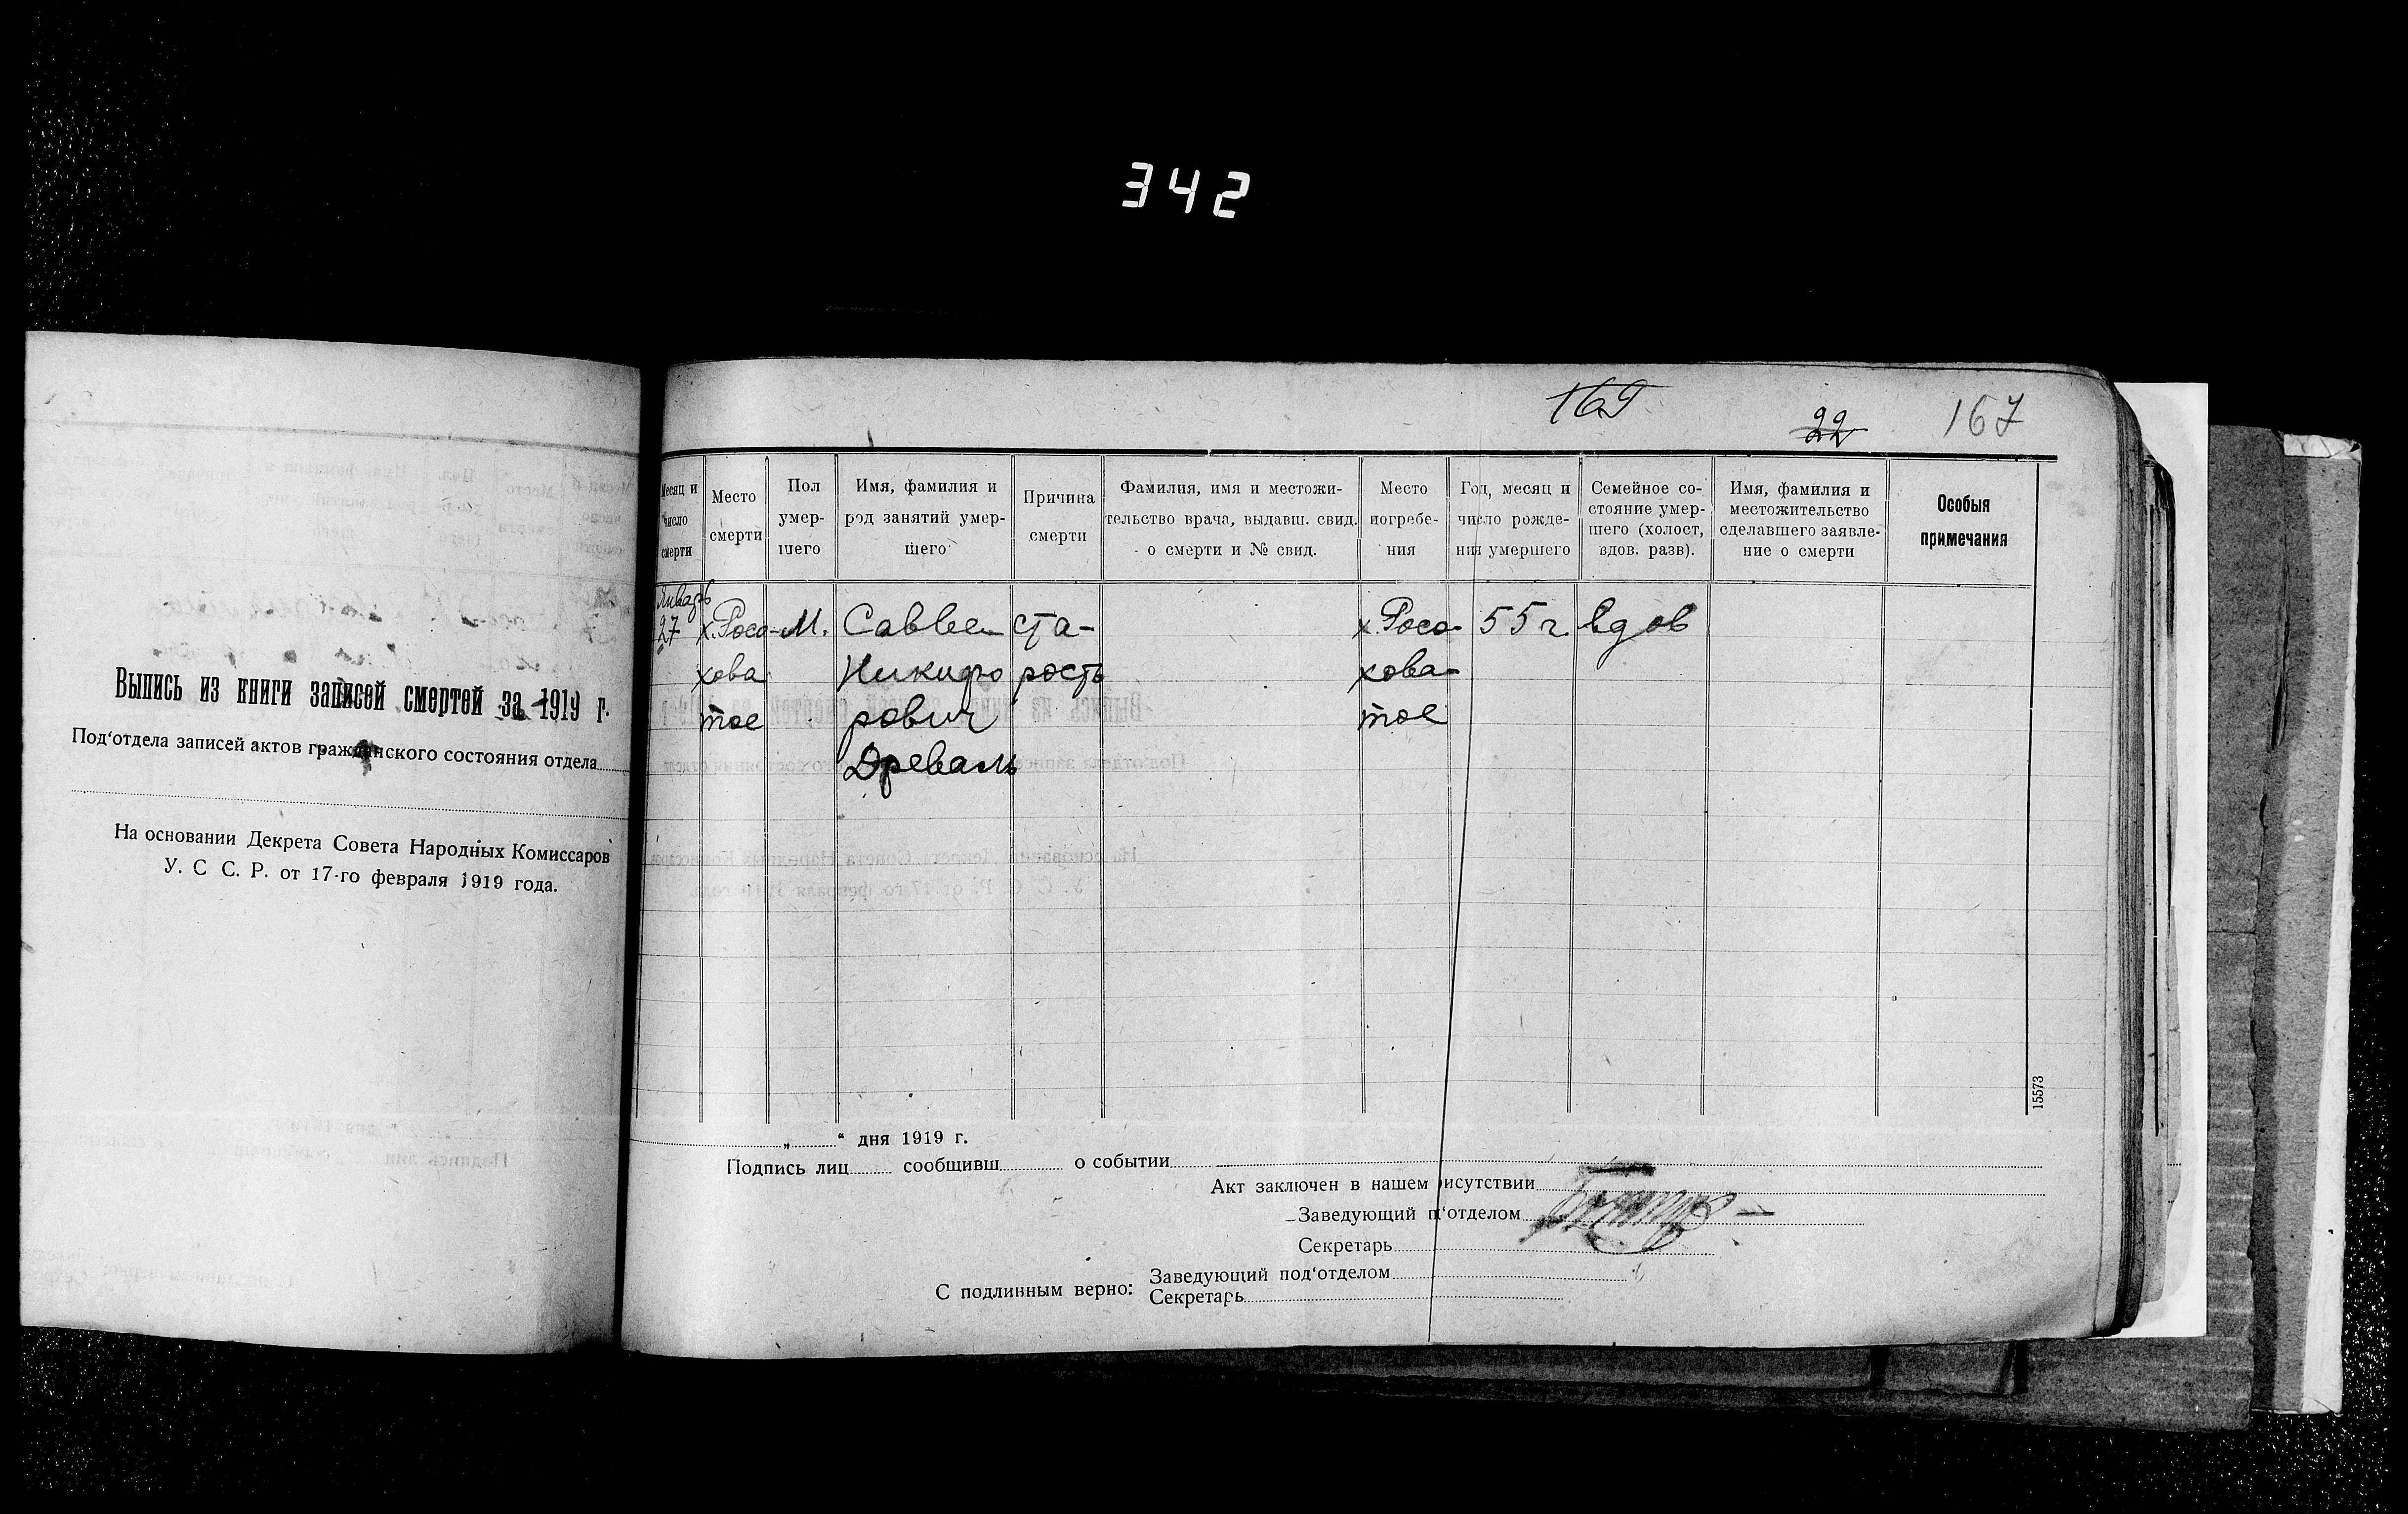 342
169
22
167
Выпись из книги записей смертей за 1919 г.
Под‘отдела записей актов гражданского состояния отдела
На основании Декрета Совета Народных Комиссаров
У. С С. Р. от 17-го февраля 1919 года.
Месяц и число смерти
Место смерти
Пол умер-шего
Имя, фамилия и род занятий умер-шего
Причина смерти
Фамилия, имя и местожи-тельство врача, выдавш. свид. о смерти и № свид.
Место погребе-ния
Год, месяц и число рожде-ния умершего
Семейное со-стояние умер-шего (холост, вдов. разв).
Имя, фамилия и местожительство сделавшего заявле-ние о смерти
Особыя примечания
Январь
27 х. Росо- М. Савва ста- х. Росо- 55 г. вдов
хова Никифо рость хова-
тое рович тое
Древаль
15573
„ “ дня 1919 г.
Подпись лиц сообщивш о событии
Акт заключен в нашем рисутствии
Заведующий п‘отделом
Секретарь
С подлинным верно: Заведующий под‘отделом
Секретарь